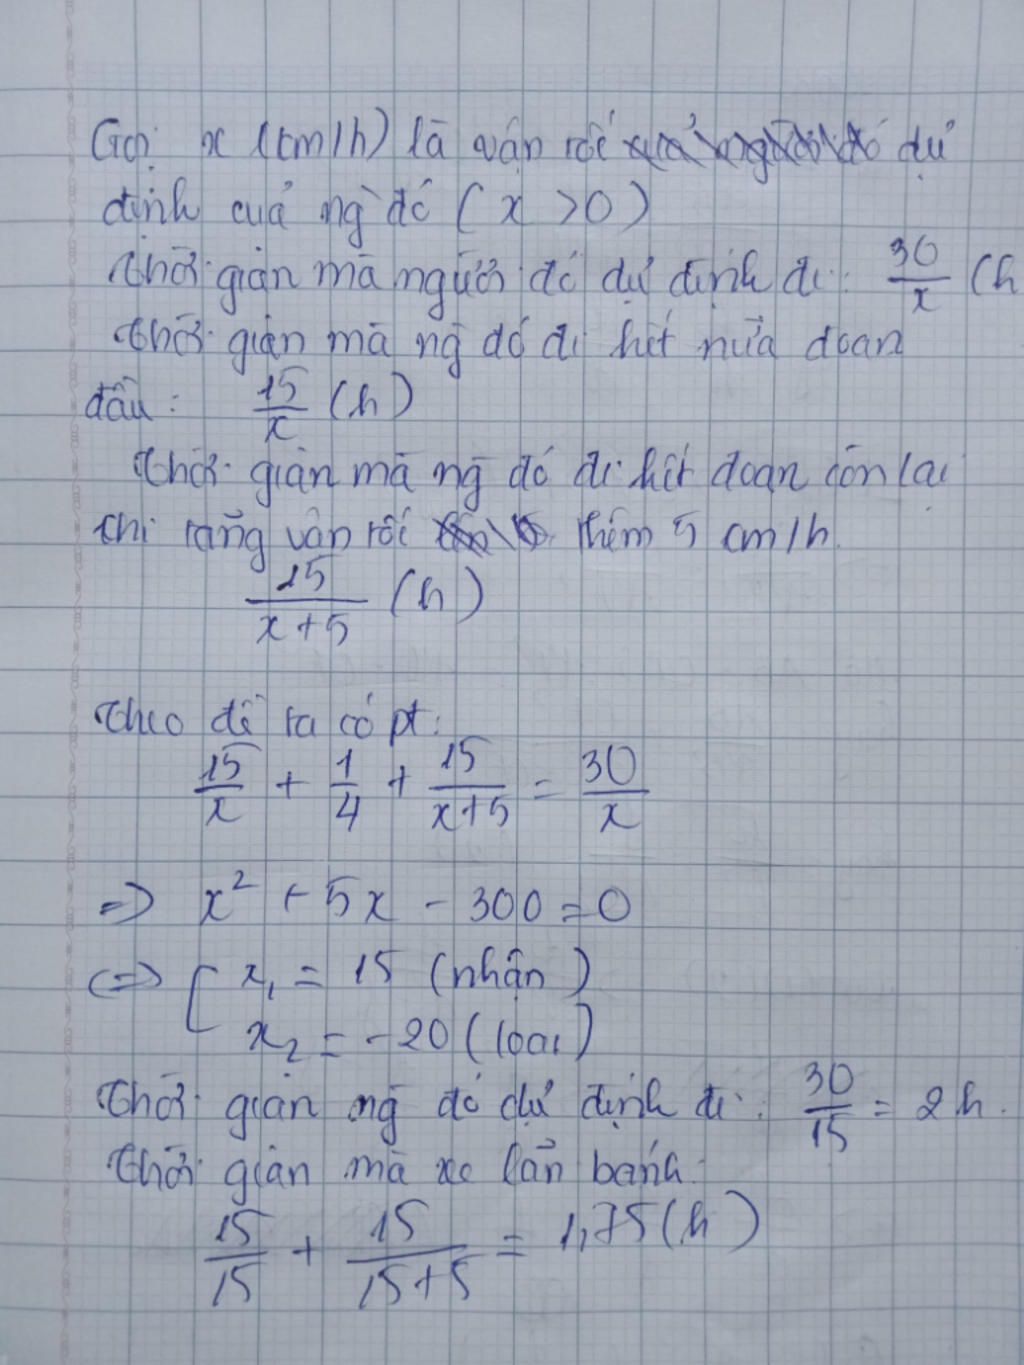 Gọi x (km/h) là vận tốc dự
định của ng đó (x > 0)
Thời gian mà người đó dự định đi: 30/x (h
Thời gian mà ng đó đi hết nửa đoạn
đầu: 15/x (h)
Thời gian mà ng đó đi hết đoạn còn lại
khi tăng vận tốc thêm 5 cm/h.
15/(x+5) (h)
Theo đề ta có pt:
15/x + 1/4 + 15/(x+5) = 30/x
=> x² + 5x - 300 = 0
<=> [ x₁ = 15 (nhận)
x₂ = -20 (loại)
Thời gian ng đó dự định đi: 30/15 = 2h.
Thời gian mà xe lăn bánh:
15/15 + 15/(15+5) = 1,75 (h)